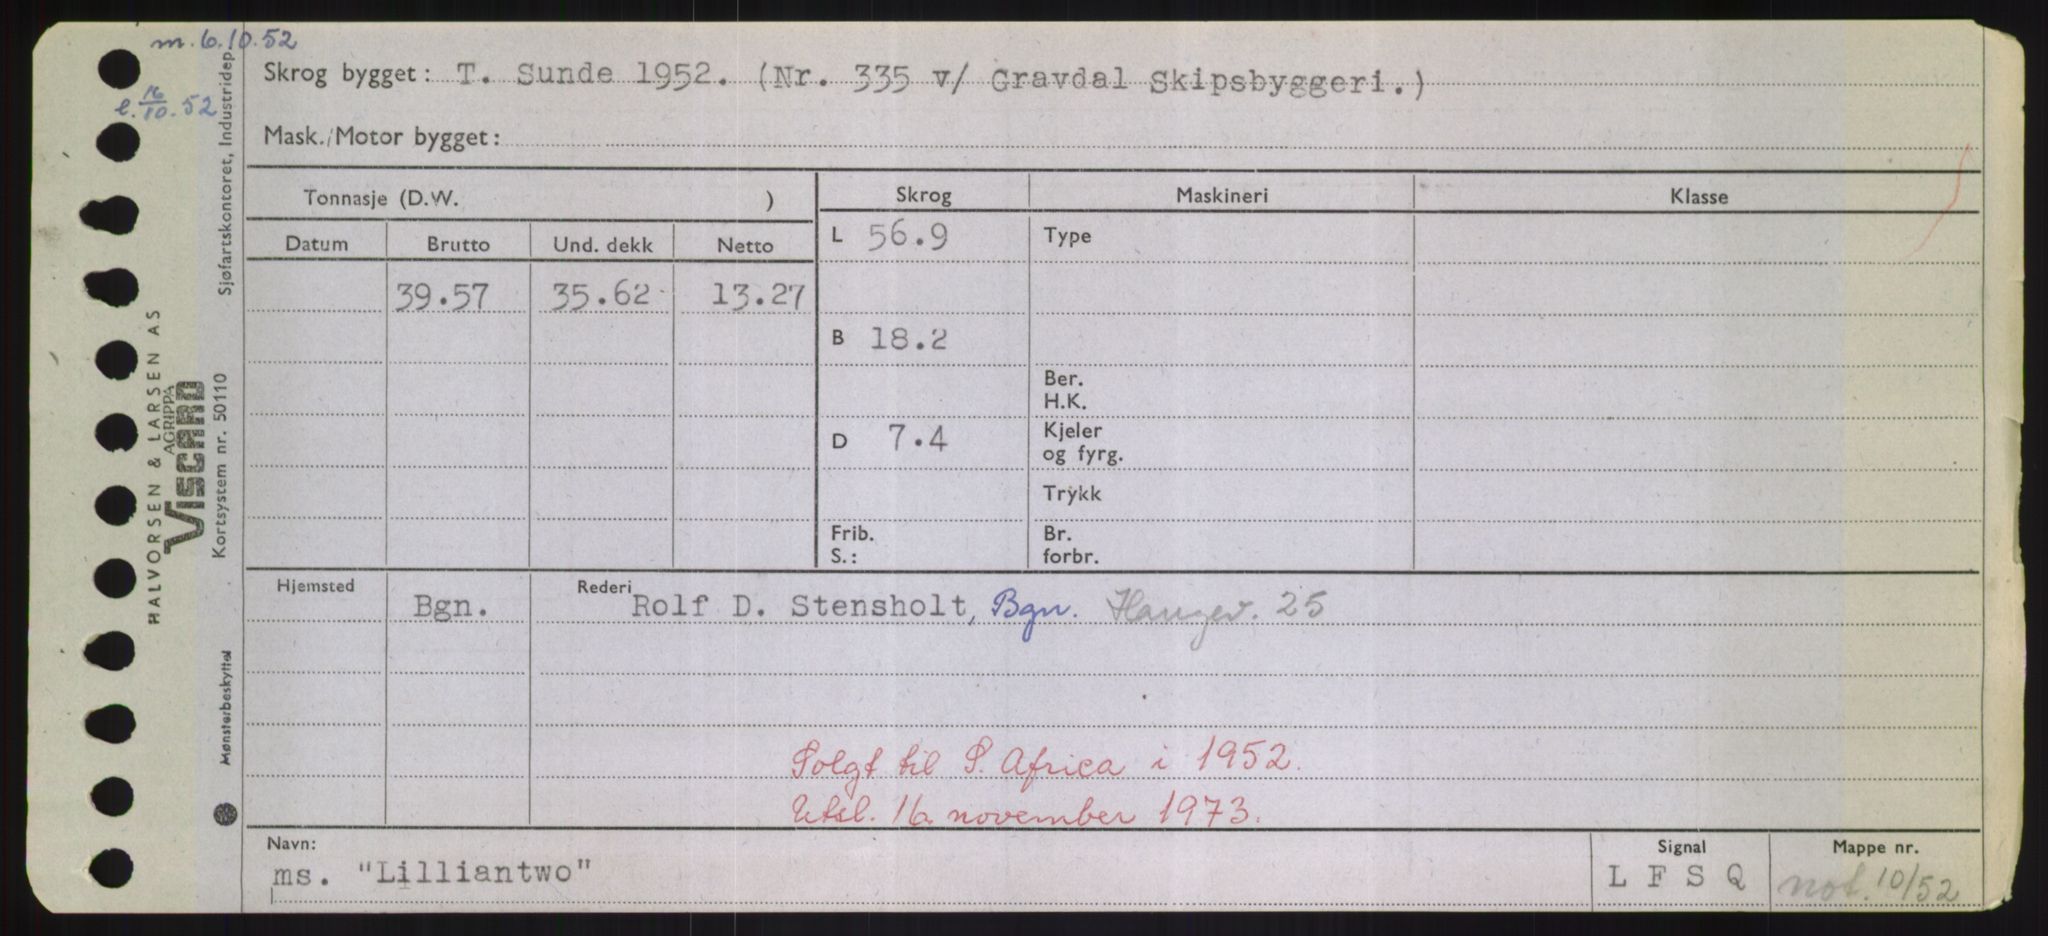 m. 6.10.52
e. 16/10.52
Skrog bygget: T. Sunde 1952. (Nr. 335 v/ Gravdal Skipsbyggeri.)
Mask./Motor bygget:
Tonnasje (D.W. )
Skrog Maskineri Klasse
Datum Brutto Und. dekk Netto
L 56.9 Type
39.57 35.62 13.27
B 18.2
Ber.
H.K.
D 7.4 Kjeler
og fyrg.
Trykk
Frib. Br.
S.: forbr.
Hjemsted Rederi
Bgn. Rolf D. Stensholt, Bgn. Haugev. 25
Solgt til S. Africa i 1952.
Utsl. 16. november 1973.
Navn: Signal Mappe nr.
ms. "Lilliantwo" L F S Q not. 10/52
Sjøfartskontoret, Industridep
HALVORSEN & LARSEN AS
AGRIPPA
VISCARD
Kortsystem nr. 50110
Mønsterbeskyttet